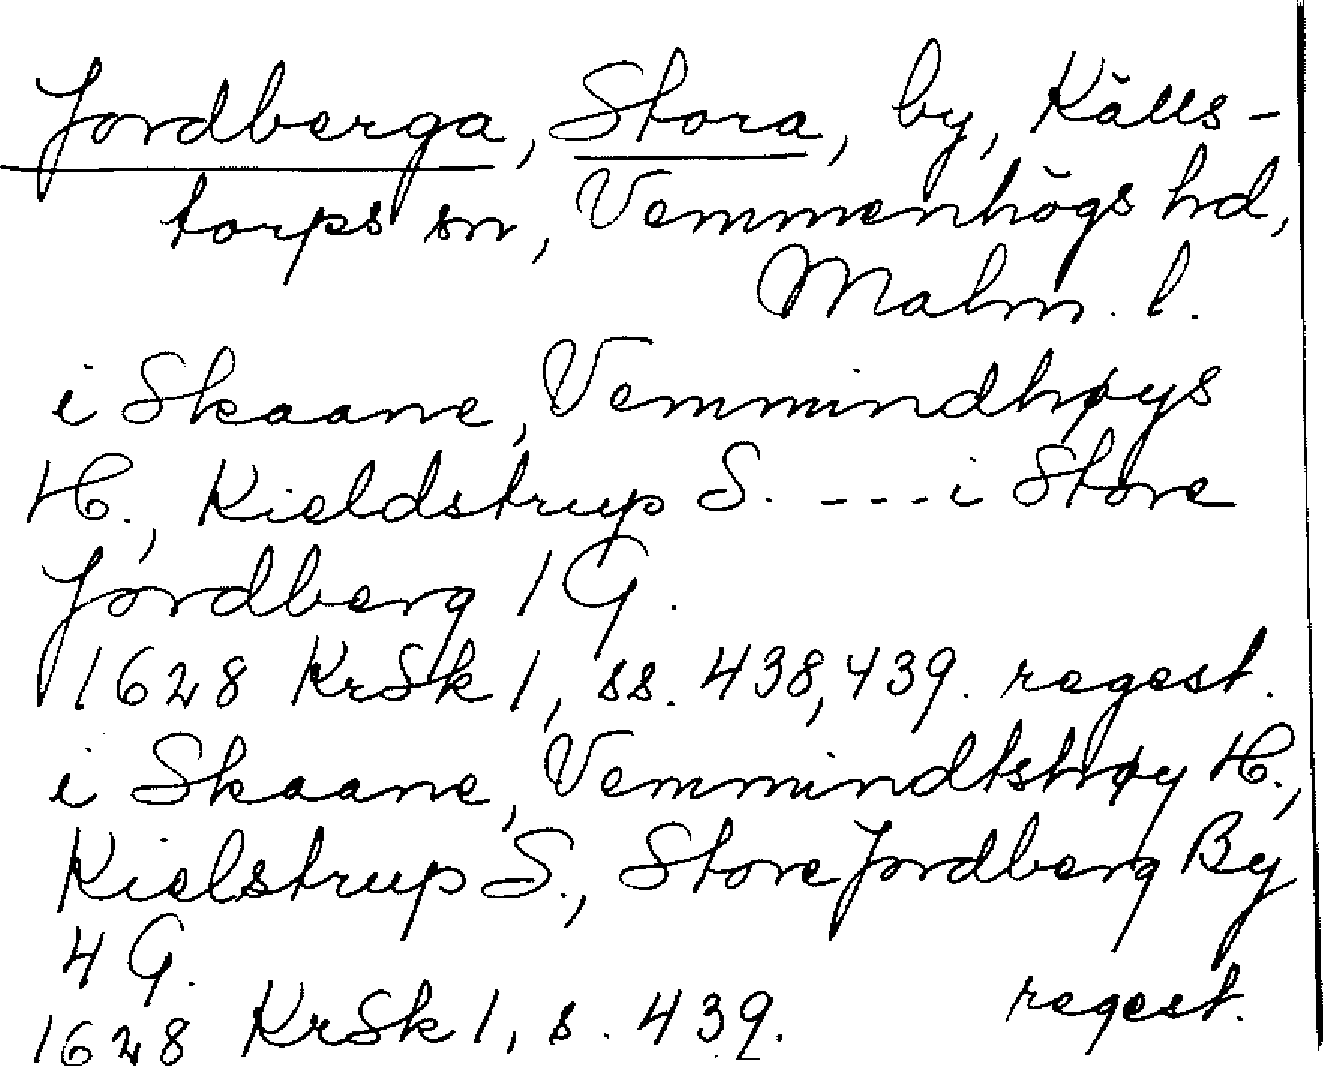 Jordberga, Stora, by, Källs-
torps sn, Vemmenhögs hd,
Malm. l.
i Skaane, Vemmindhøys
H., Kieldstrup S. ---i Store
Jordberg 1 G.
1628 KrSk 1, ss. 438,439. regest.
i Skaane, Vemmindtshøy H.,
Kielstrup S., Store Jordberg By
4 G.
1628 KrSk 1, s. 439. regest.